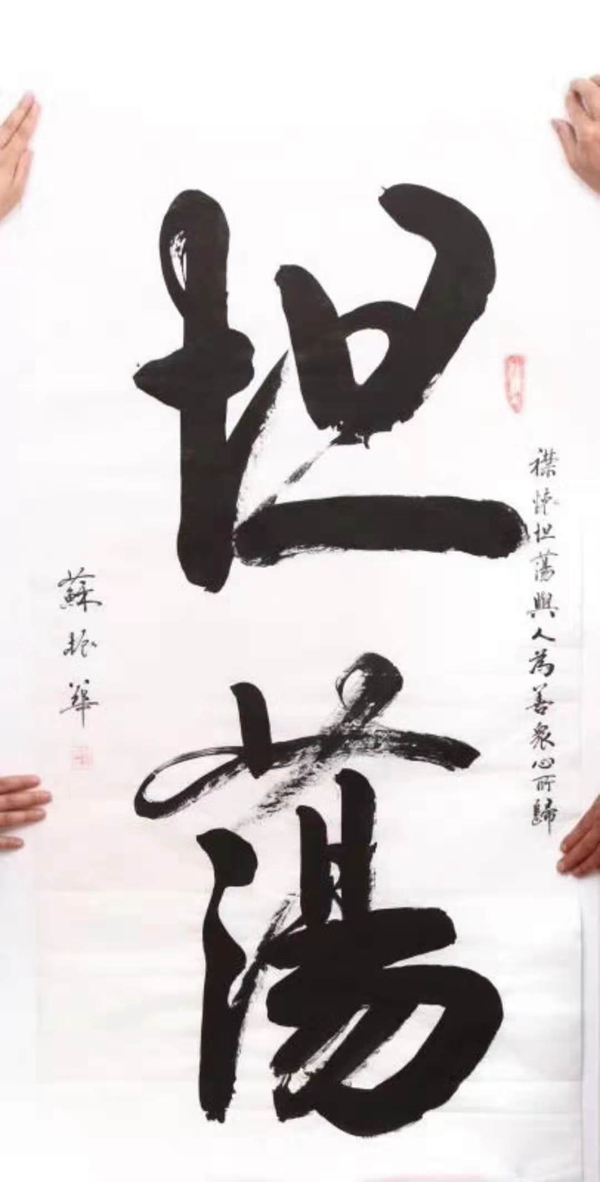 坦蕩
襟懷坦蕩與人為善衆心所歸
蘇振華